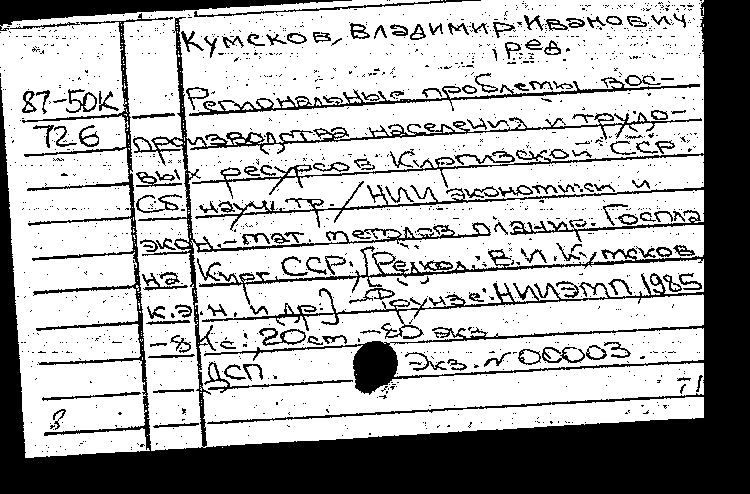 Кумсков, Владимир Иванович
, ред.
87-50К Региональные проблемы вос-
726 производства населения и трудо-
вых ресурсов Киргизской ССР:
Сб. науч. тр. / НИИ экономики и
экон.-мат. методов планир. Госпла
на Кирг. ССР; [Редкол.: В.И. Кумсков,
к.э.н. и др.] - Фрунзе: НИИЭМП, 1985
с.; 20 см. - 80 экз.
ДСП. Экз. № 00003.
71
8